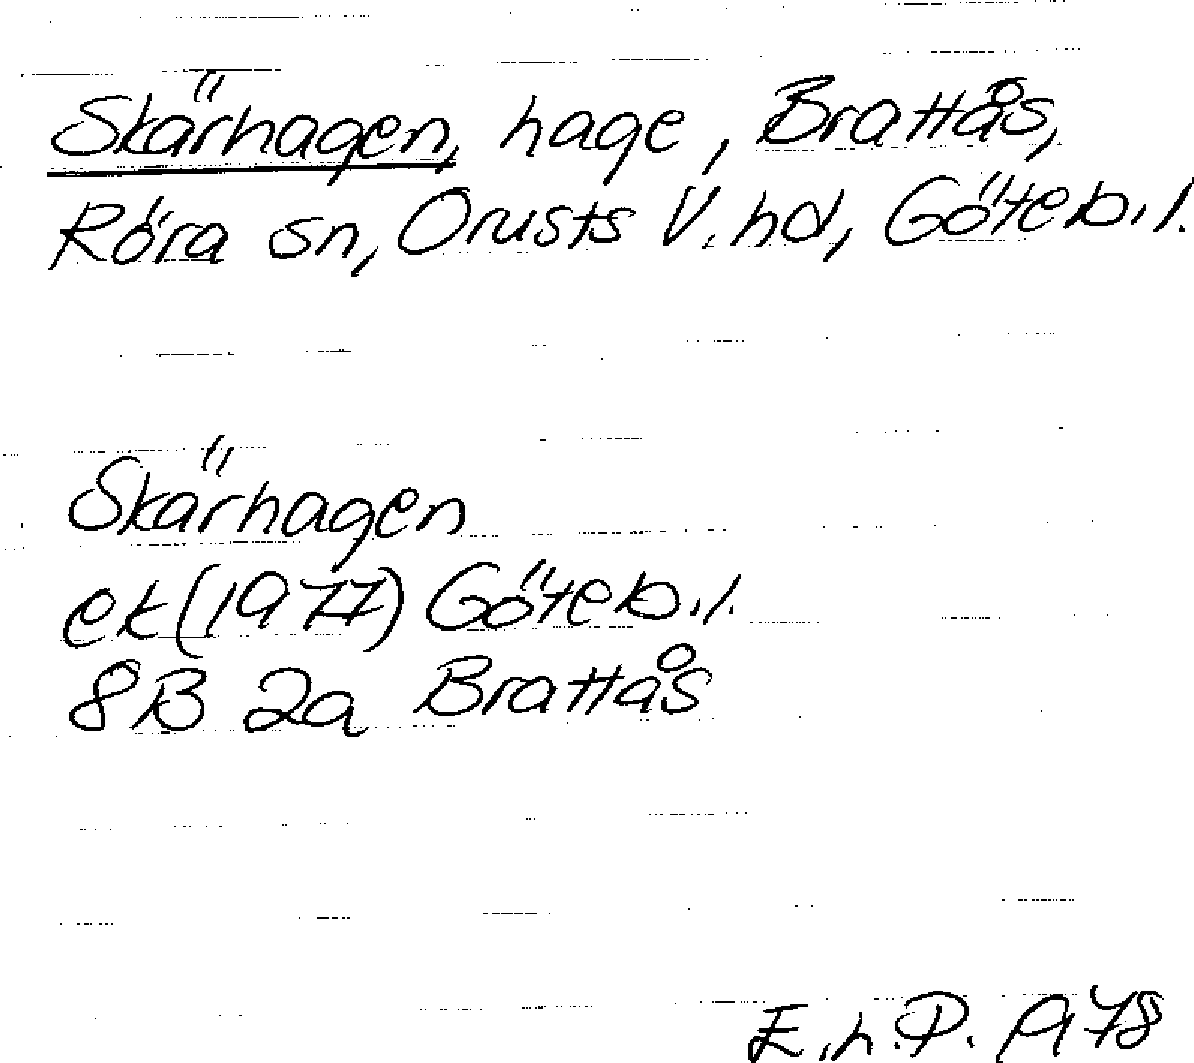 Skärhagen, hage, Brattås,
Röra sn, Orusts V. hd, Göteb. l.
Skärhagen
ek (1977) Göteb. l.
8B 2a Brattås
E.h.P. 1978